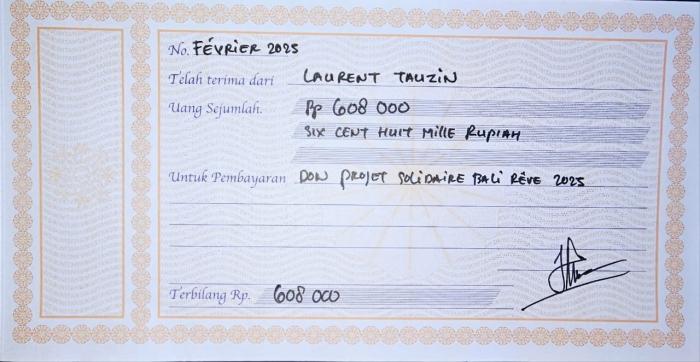 No. FÉVRIER 2025
Telah terima dari LAURENT TAUZIN
Uang Sejumlah. Rp 608 000
SIX CENT HUIT MILLE RUPIAH
Untuk Pembayaran DON PROJET SOLIDAIRE BALI RÊVE 2025
Terbilang Rp. 608 000